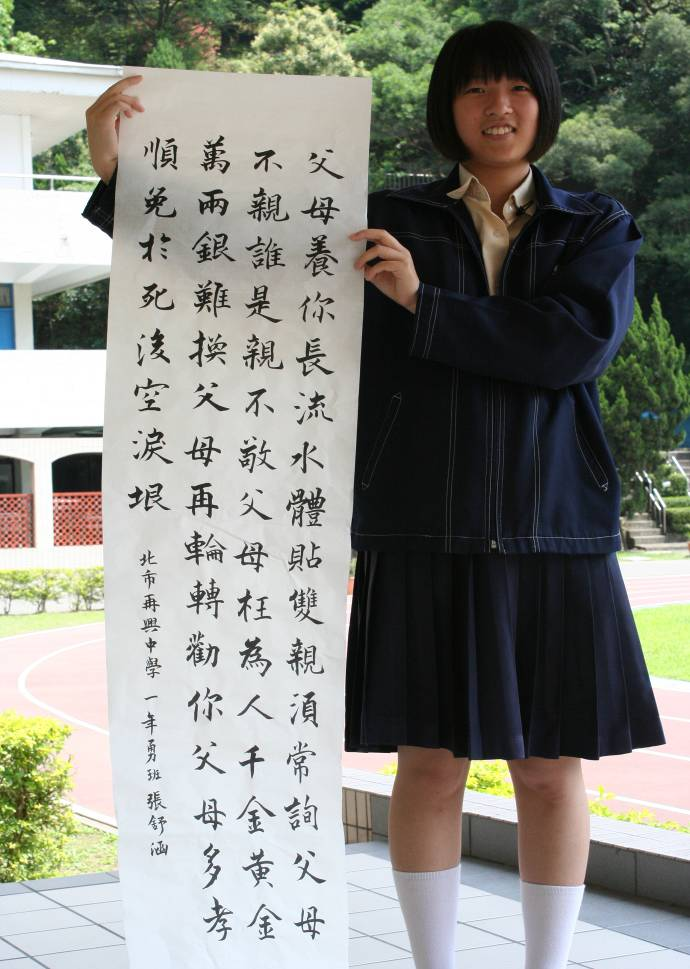 父母養你長流水體貼雙親須常詢父母
不親誰是親不敬父母枉為人千金黃金
萬兩銀難換父母再輪轉勸你父母多孝
順免於死後空淚垠
北市再興中學一年勇班張舒涵